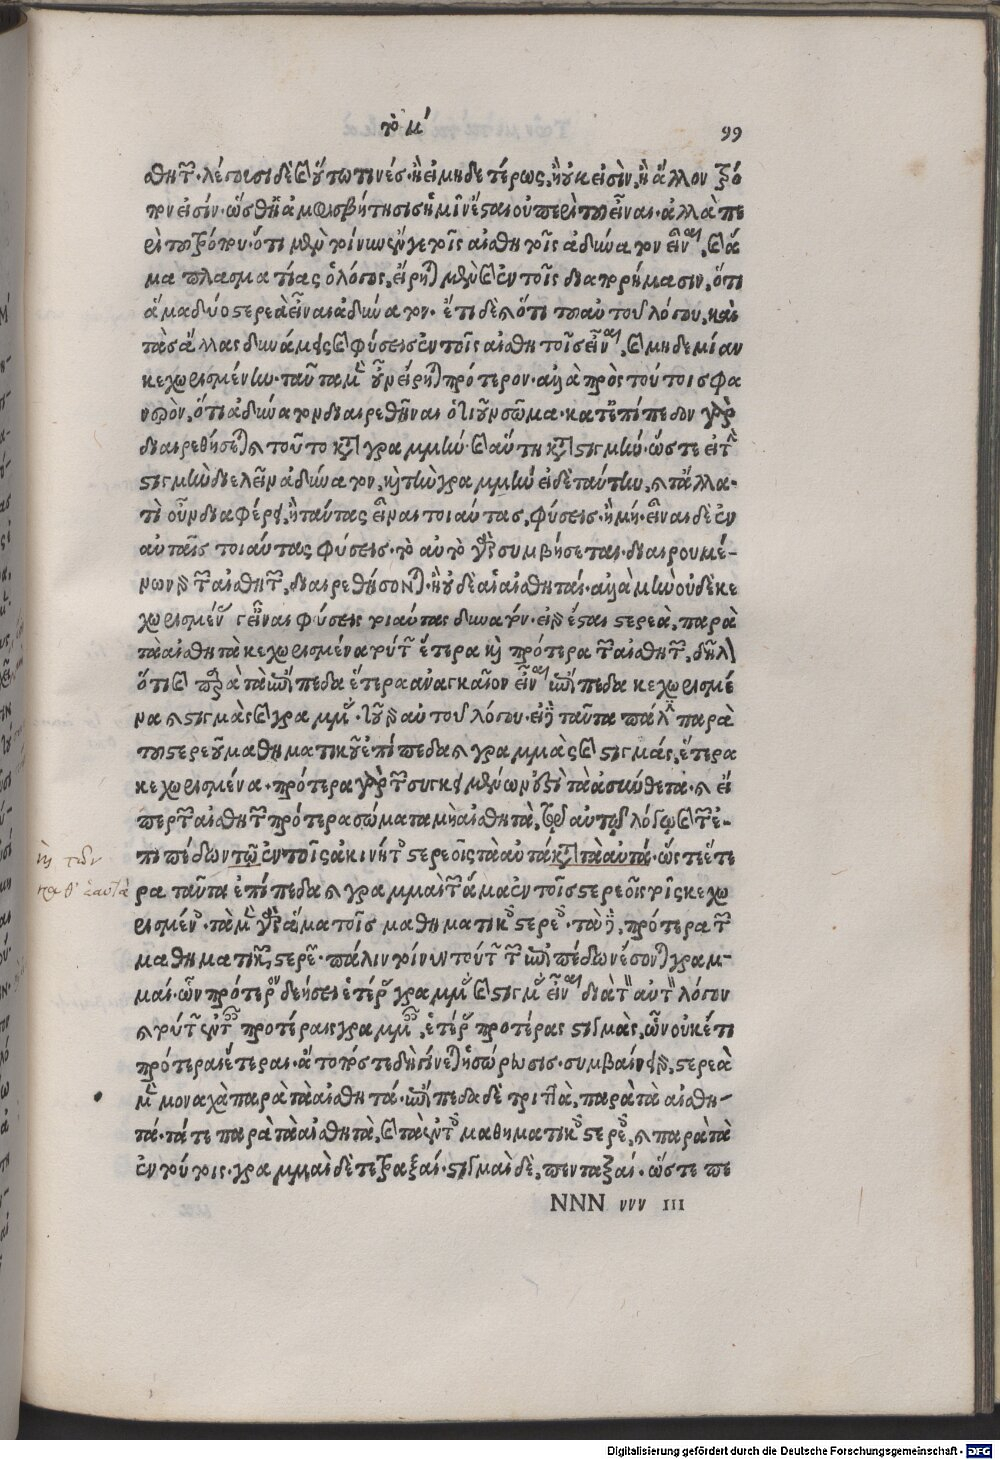 τὸ μ´ 99
σθητῶν. λέγουσι δὲ καὶ οὕτω τινές. ἢ εἰ μηδετέρως, ἢ οὐκ εἰσὶν, ἢ ἄλλον τρό
πον εἰσίν. ὥσθ' ἡ ἀμφισβήτησις ἡμῖν ἔσται οὐ περὶ τοῦ εἶναι. ἀλλὰ πε
ρὶ τοῦ τρόπου. ὅτι μὲν τοίνυν ἔν γε τοῖς αἰσθητοῖς ἀδύνατον εἶναι, καὶ ἅ
μα πλασματίας ὁ λόγος, εἴρηται μὲν καὶ ἐν τοῖς διαπορήμασιν, ὅτι
ἅμα δύο στερεὰ εἶναι ἀδύνατον. ἔτι δὲ καὶ ὅτι τοῦ αὐτοῦ λόγου, καὶ
τὰς ἄλλας δυνάμεις καὶ φύσεις ἐν τοῖς αἰσθητοῖς εἶναι, καὶ μηδεμίαν
κεχωρισμένην. ταῦτα μὲν οὖν εἴρηται πρότερον. ἀλλὰ πρὸς τούτοις φα
νερὸν, ὅτι ἀδύνατον διαιρεθῆναι ὁτιοῦν σῶμα. κατ' ἐπίπεδον γὰρ
διαιρεθήσεται καὶ τοῦτο κατὰ γραμμὴν. καὶ αὕτη κατὰ στιγμὴν. ὥστε εἰ τὴν
στιγμὴν διελεῖν ἀδύνατον, καὶ τὴν γραμμὴν εἰ δὲ ταύτην, καὶ τἄλλα.
τί οὖν διαφέρει, ἢ ταύτας εἶναι τοιαύτας, φύσεις. ἢ μὴ. εἶναι δὲ ἐν
αὐταῖς τοιαύτας φύσεις. τὸ αὐτὸ γὰρ συμβήσεται. διαιρουμέ-
νων γὰρ τῶν αἰσθητῶν, διαιρεθήσονται. ἢ οὐδὲ αἱ αἰσθηταί. ἀλλὰ μὴν οὐδὲ κε
χωρισμένας γ' εἶναι φύσεις τοιαύτας δυνατόν. εἰ γὰρ ἔσται στερεὰ, παρὰ
τὰ αἰσθητὰ κεχωρισμένα τούτων ἕτερα καὶ πρότερα τῶν αἰσθητῶν, δῆλον
ὅτι καὶ παρὰ τὰ ἐπίπεδα ἕτερα ἀναγκαῖον εἶναι ἐπίπεδα κεχωρισμέ
να καὶ στιγμὰς καὶ γραμμάς. τοῦ γὰρ αὐτοῦ λόγου. εἰ δὲ ταῦτα πάλιν παρὰ
τοῦ στερεοῦ μαθηματικοῦ ἐπίπεδα καὶ γραμμὰς καὶ στιγμάς, ἕτερα
κεχωρισμένα. πρότερα γὰρ τῶν συγκειμένων ἐστὶ τὰ ἀσύνθετα. καὶ εἴ
περ τῶν αἰσθητῶν πρότερα σώματα μὴ αἰσθητὰ, τῷ αὐτῷ λόγῳ καὶ τῶν ἐ-
πιπέδων τῶν ἐν τοῖς ἀκινήτοις στερεοῖς τὰ αὐτὰ κατὰ τὰ αὐτά. ὥστε ἕτε
ρα ταῦτα ἐπίπεδα καὶ γραμμαὶ τῶν ἅμα ἐν τοῖς στερεοῖς τοῖς κεχω
ρισμένοις. τὰ μὲν γὰρ ἅμα τοῖς μαθηματικοῖς στερεοῖς. τὰ δὲ, πρότερα τῶν
μαθηματικῶν, στερεῶν. πάλιν τοίνυν τούτων τῶν ἐπιπέδων ἔσονται γραμ-
μαί. ὧν πρότερον δεήσει ἑτέρας γραμμὰς καὶ στιγμὰς εἶναι διὰ τὸν αὐτὸν λόγον
καὶ τούτων ἐν ταῖς προτέραις γραμμαῖς, ἑτέρας προτέρας στιγμὰς, ὧν οὐκέτι
πρότεραι ἕτεραι. ἄτοπός τε δὴ γίνεται ἡ σώρευσις. συμβαίνει γὰρ, στερεὰ
μὲν μοναχὰ παρὰ τὰ αἰσθητά. ἐπίπεδα δὲ τριττὰ, παρὰ τὰ αἰσθη-
τά. τά τε παρὰ τὰ αἰσθητὰ, καὶ τὰ ἐν τοῖς μαθηματικοῖς στερεοῖς, καὶ παρὰ τὰ
ἐν τούτοις. γραμμαὶ δὲ τετραξαί. στιγμαὶ δὲ, πενταξαί. ὥστε πε
NNN ννν III
τῶν
καθ' ἑαυτὰ
Digitalisierung gefördert durch die Deutsche Forschungsgemeinschaft - DFG